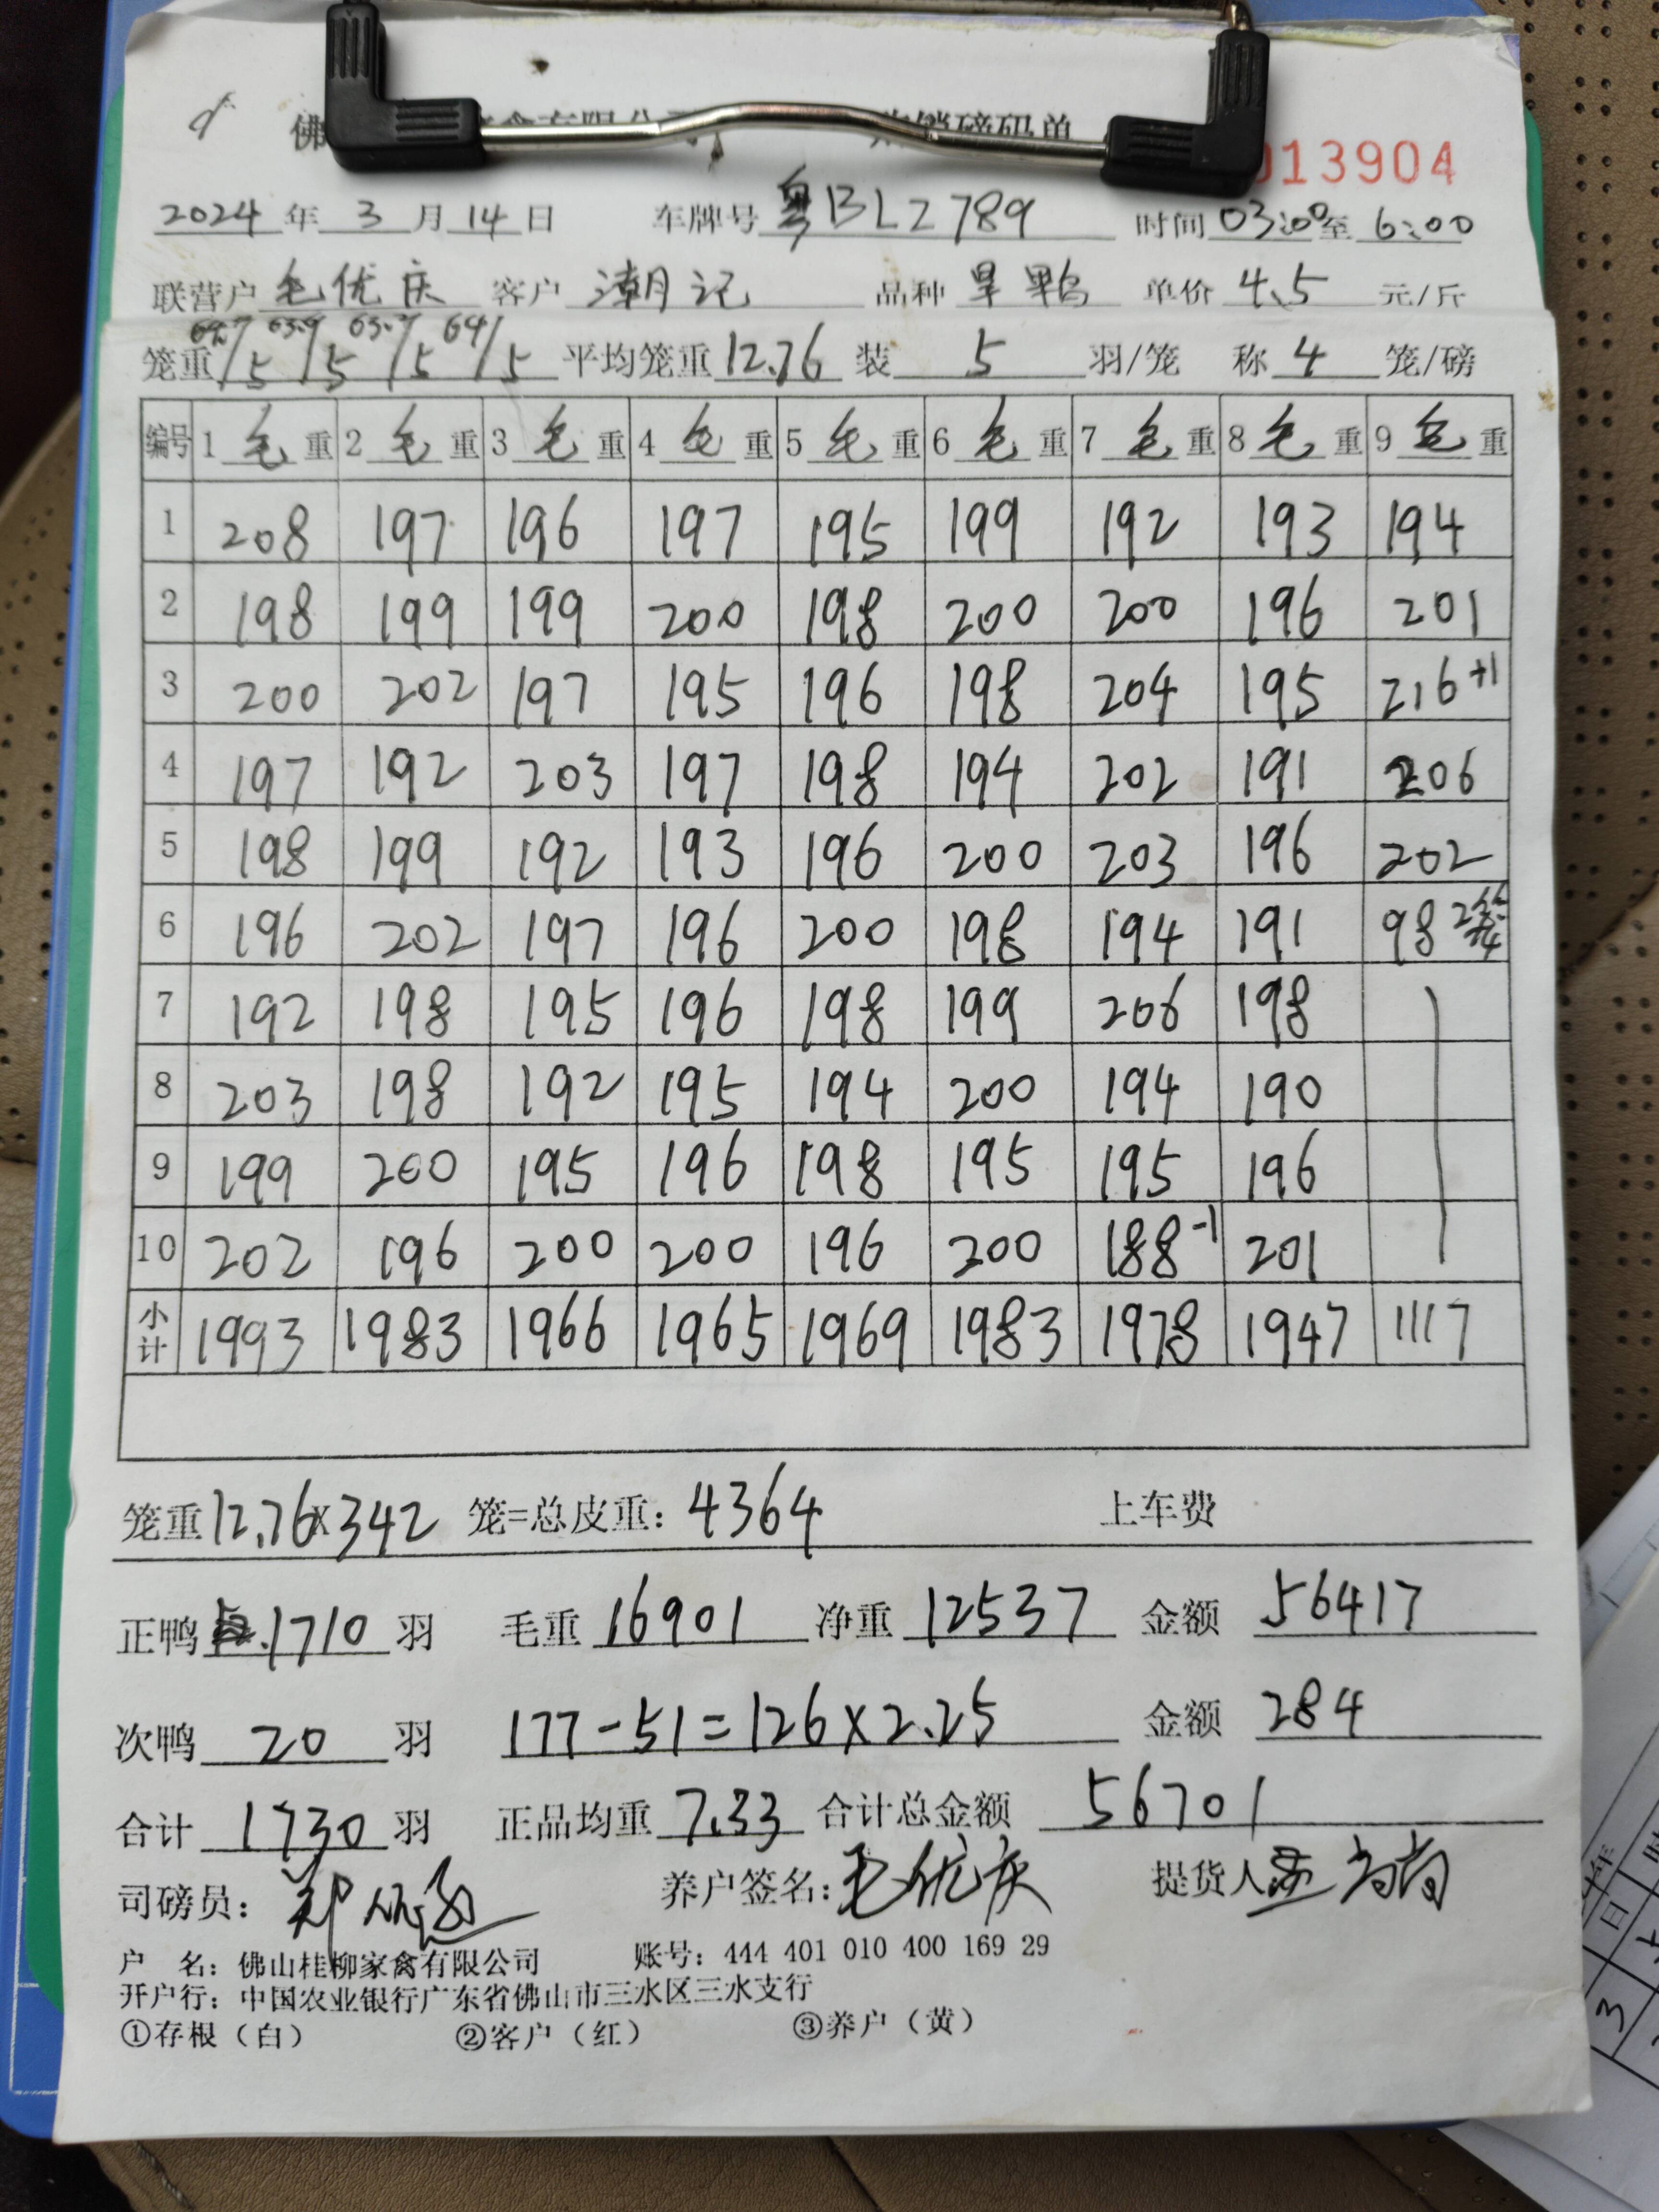 佛
013904
2024 年 3 月 14 日 车牌号 粤BLZ789 时间 03:00 至 6:00
联营户 毛优庆 客户 潮记 品种 旱鸭 单价 4.5 元/斤
笼重 /5 63.9/5 63.7/5 64/5 平均笼重 12.76 装 5 羽/笼 称 4 笼/磅
编号 1 毛 重 2 毛 重 3 毛 重 4 毛 重 5 毛 重 6 毛 重 7 毛 重 8 毛 重 9 毛 重
1 208 197 196 197 195 199 192 193 194
2 198 199 199 200 198 200 200 196 201
3 200 202 197 195 196 198 204 195 216+1
4 197 192 203 197 198 194 202 191 206
5 198 199 192 193 196 200 203 196 202
6 196 202 197 196 200 198 194 191 98
7 192 198 195 196 198 199 206 198
8 203 198 192 195 194 200 194 190
9 199 200 195 196 198 195 195 196
10 202 196 200 200 196 200 188-1 201
小计 1993 1983 1966 1965 1969 1983 1978 1947 1117
笼重 12.76×342 笼=总皮重: 4364 上车费
正鸭 1710 羽 毛重 16901 净重 12537 金额 56417
次鸭 20 羽 177-51=126×2.25 金额 284
合计 1730 羽 正品均重 7.33 合计总金额 56701
司磅员: 养户签名: 毛优庆 提货人
户 名: 佛山桂柳家禽有限公司 账号: 444 401 010 400 169 29
开户行: 中国农业银行广东省佛山市三水区三水支行
①存根（白） ②客户（红） ③养户（黄）